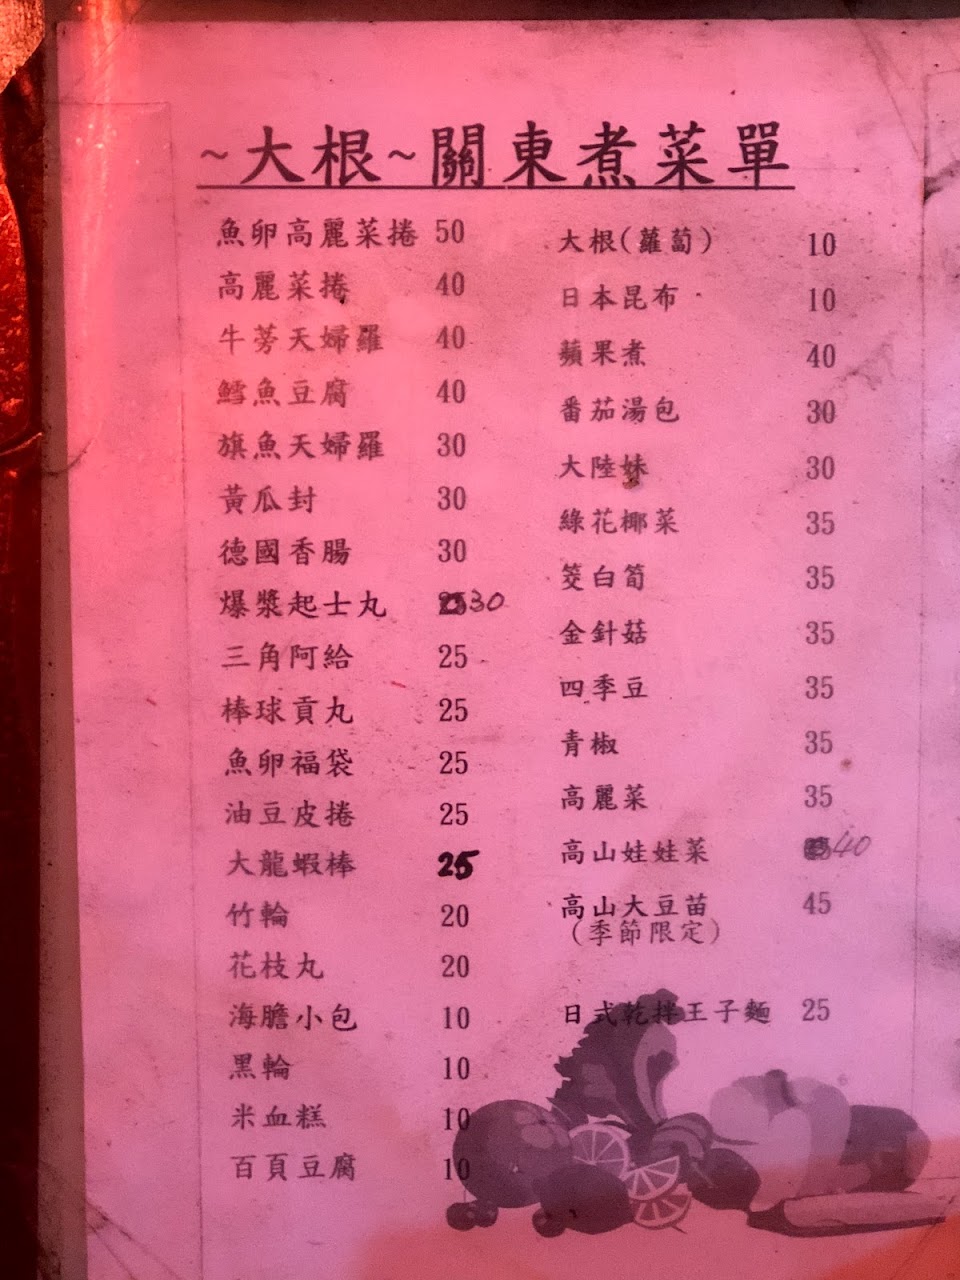 ~大根~關東煮菜單
魚卵高麗菜捲 50
高麗菜捲 40
牛蒡天婦羅 40
鱈魚豆腐 40
旗魚天婦羅 30
黃瓜封 30
德國香腸 30
爆漿起士丸 30
三角阿給 25
棒球貢丸 25
魚卵福袋 25
油豆皮捲 25
大龍蝦棒 25
竹輪 20
花枝丸 20
海膽小包 10
黑輪 10
米血糕 10
百頁豆腐 10
大根(蘿蔔) 10
日本昆布 10
蘋果煮 40
番茄湯包 30
大陸妹 30
綠花椰菜 35
筊白筍 35
金針菇 35
四季豆 35
青椒 35
高麗菜 35
高山娃娃菜 40
高山大豆苗 45
(季節限定)
日式乾拌王子麵 25